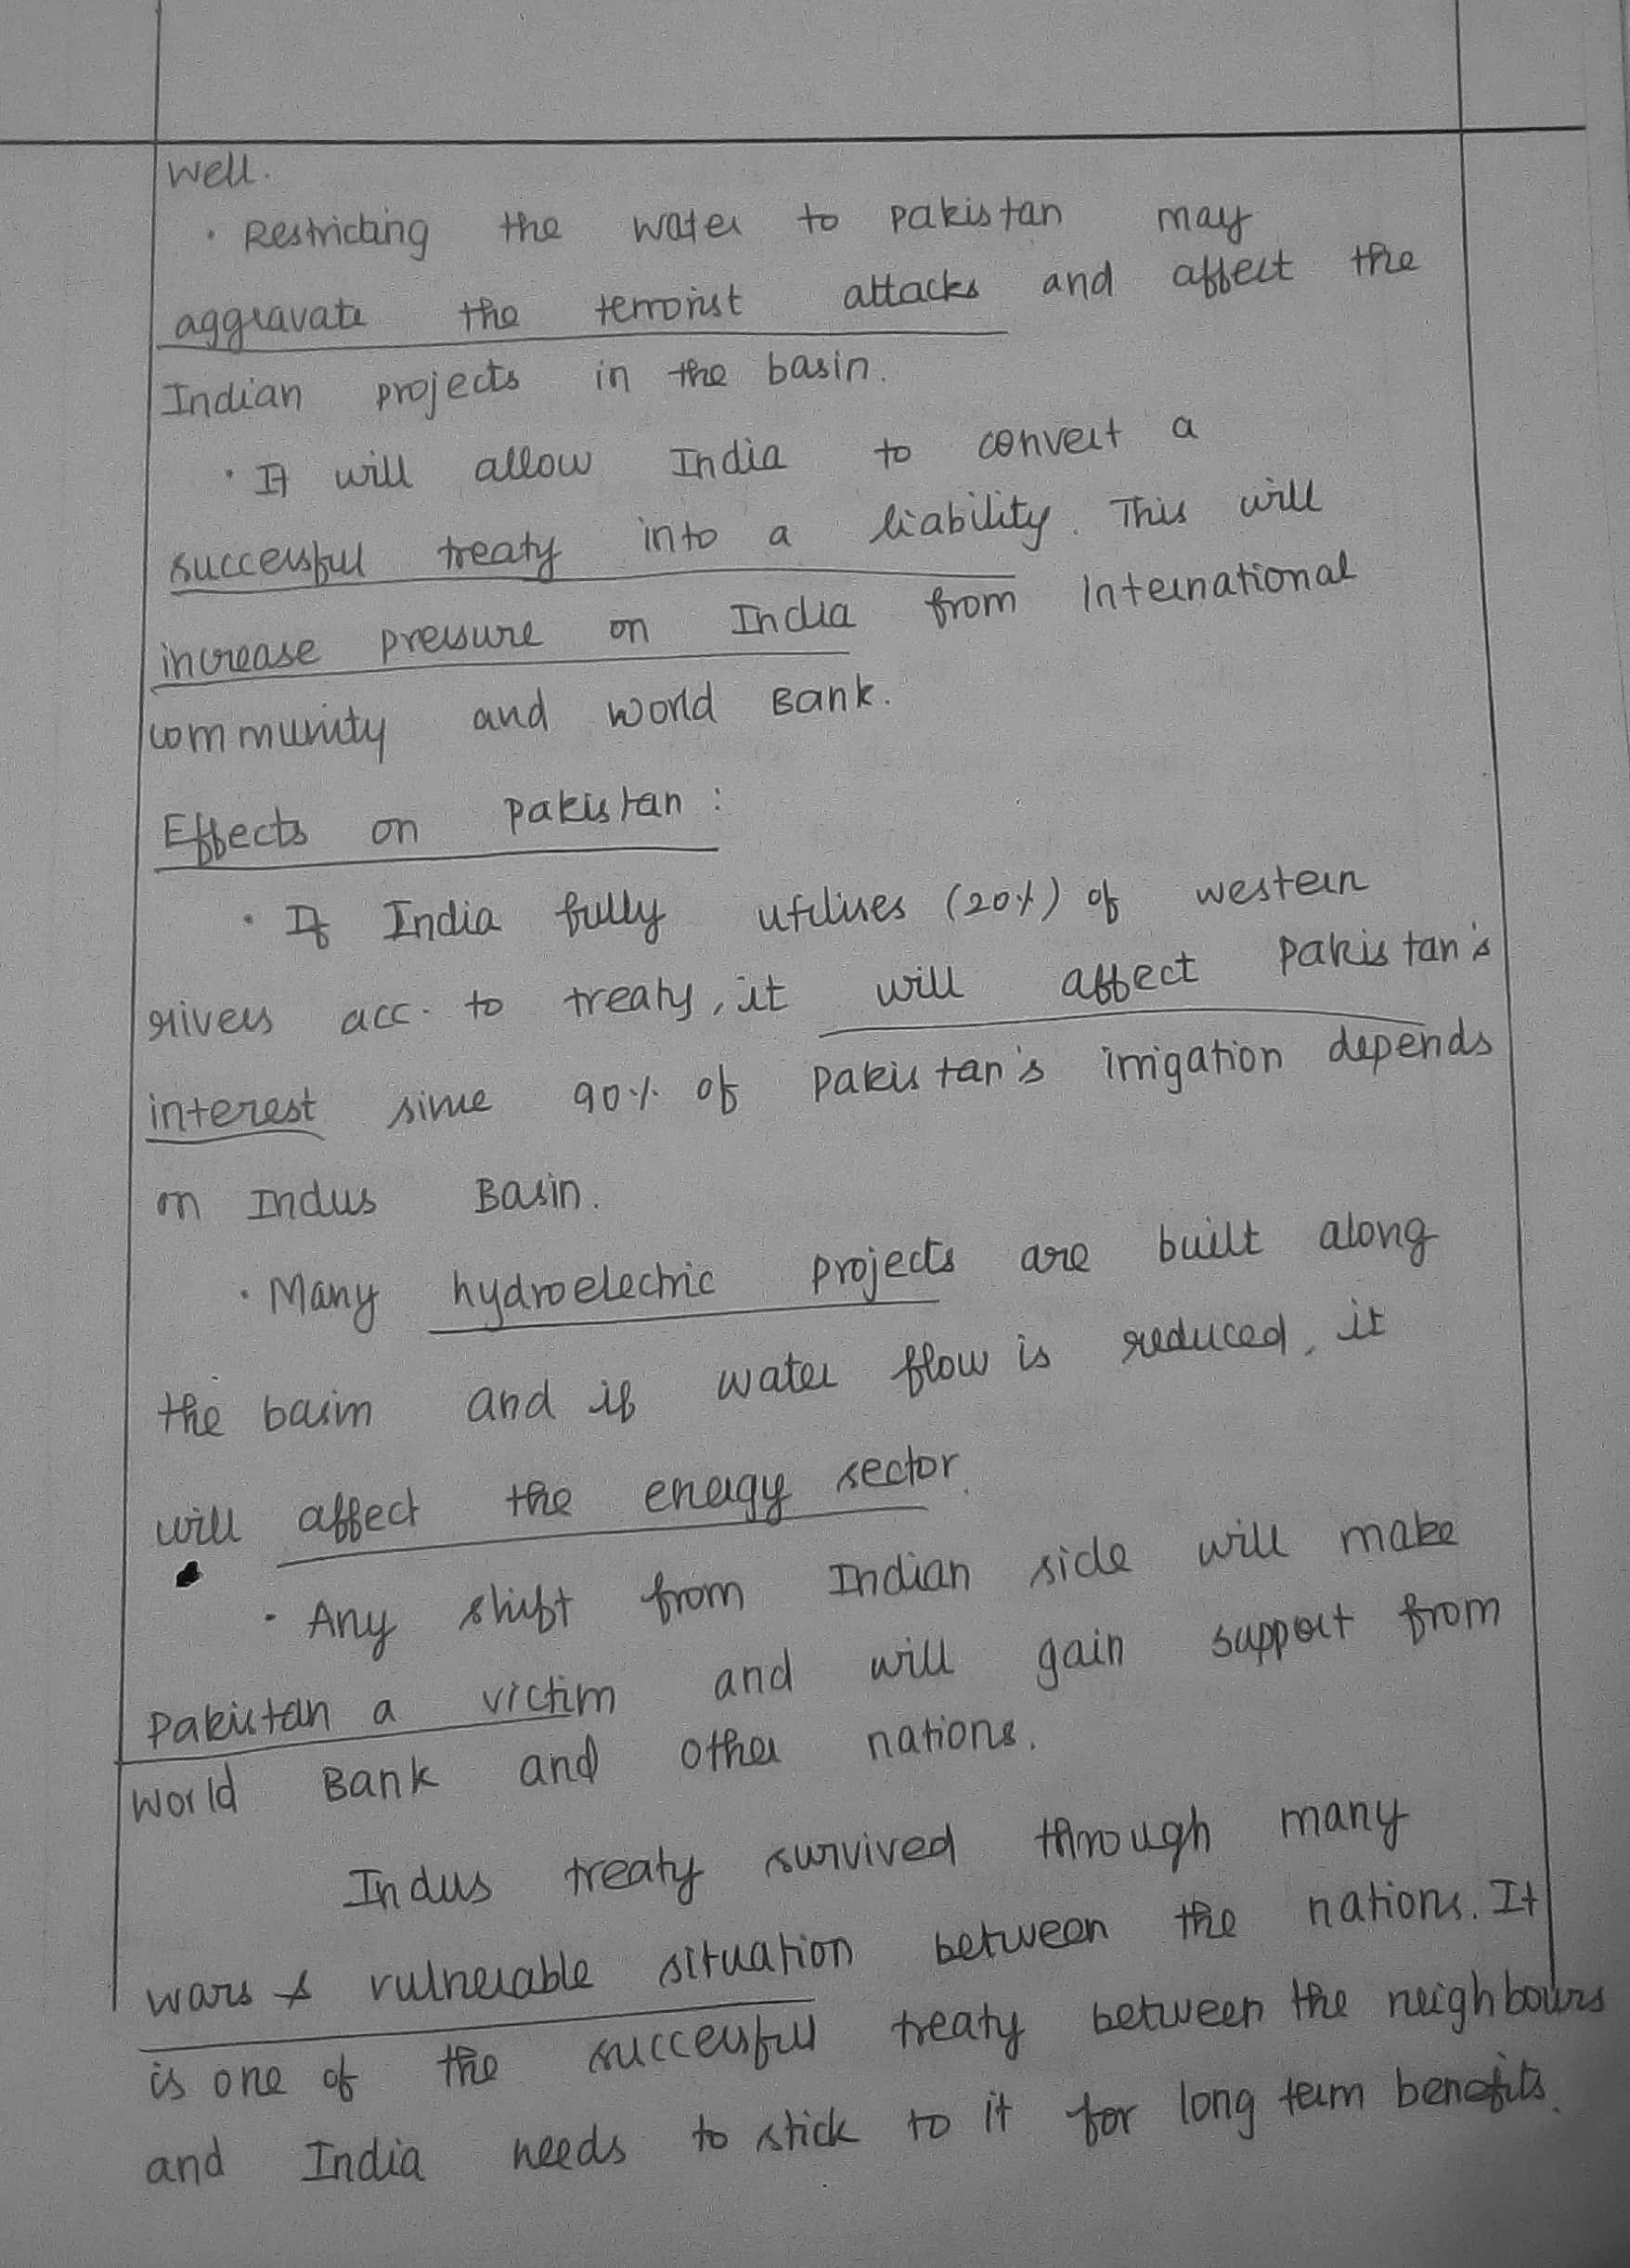 well.
• Restricting the water to pakistan may
aggravate the terrorist attacks and affect the
Indian projects in the basin.
• It will allow India to convert a
successful treaty into a liability. This will
increase pressure on India from International
community and world Bank.
Effects on pakistan :
• If India fully utilises (20%) of western
rivers acc. to treaty, it will affect pakistan's
interest since 90% of pakistan's irrigation depends
on Indus Basin.
• Many hydroelectric projects are built along
the basin and if water flow is reduced, it
will affect the energy sector.
• Any shift from Indian side will make
pakistan a victim and will gain support from
world Bank and other nations.
Indus treaty survived through many
wars & vulnerable situation between the nations. It
is one of the successful treaty between the neighbours
and India needs to stick to it for long term benefits.